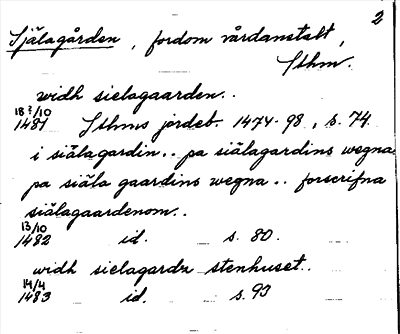 2
Själagården, fordom vårdanstalt,
Sthm.
widh sielagaarden..
18?/10
1481 Sthms jordeb. 1474-98, s. 74
i siälagardin.. pa siälagardins wegna
pa siäla gaardins wegna.. forscrifna
siälagaardenom..
13/10
1482 id. s. 80.
widh sielagardz stenhuset..
14/4
1483 id. s. 93